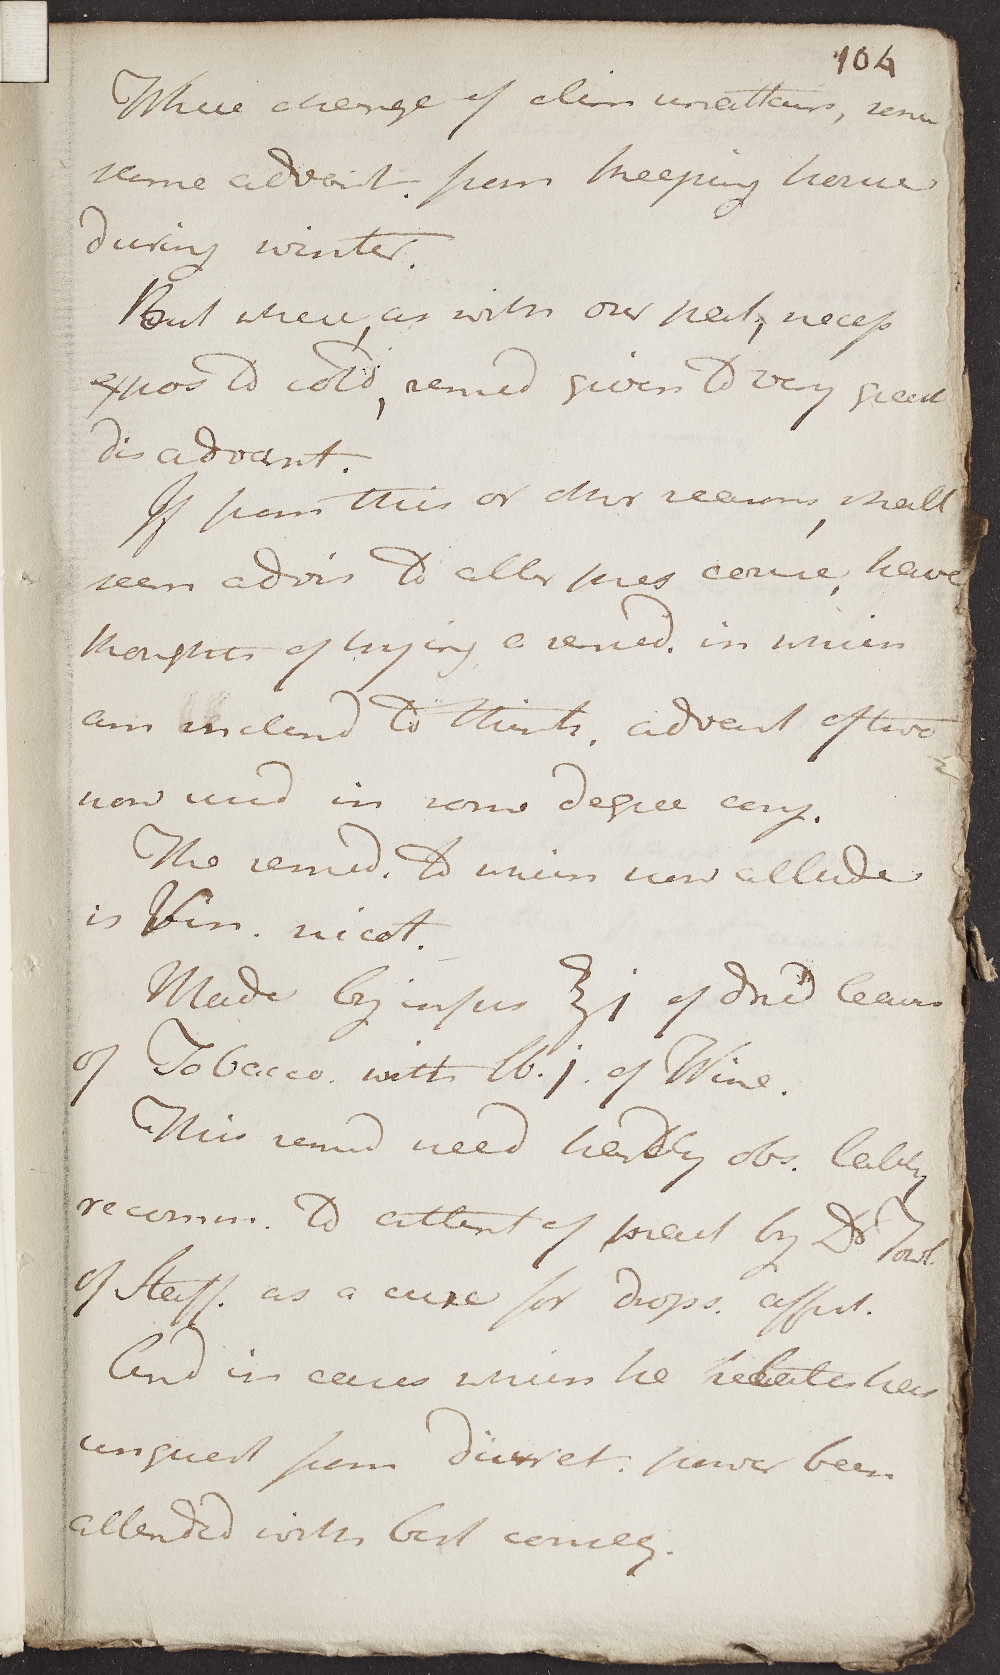 104
Where change of clim unattain, even
some advant. from keeping house
during winter.
But where, as with our pat, necess
expos to cold, remed given to very great
disadvant.
If from this or other reasons, shall
seem advis to alter pres course, have
thoughts of trying a remed. in which
am inclend to think, advant of two
now used in some degree conj.
The remed. to which now allude
is Vin. nicot.
Made by infus ℥j of dried leaves
of Tobacco. with lb.j. of Wine.
This remed need hardly obs. lately
recomm. to attent of pract by Dr Fowl.
of Staff. as a cure for drops. affect.
And in cases which he relates has
unquest from diuret. power been
attended with best conseq.